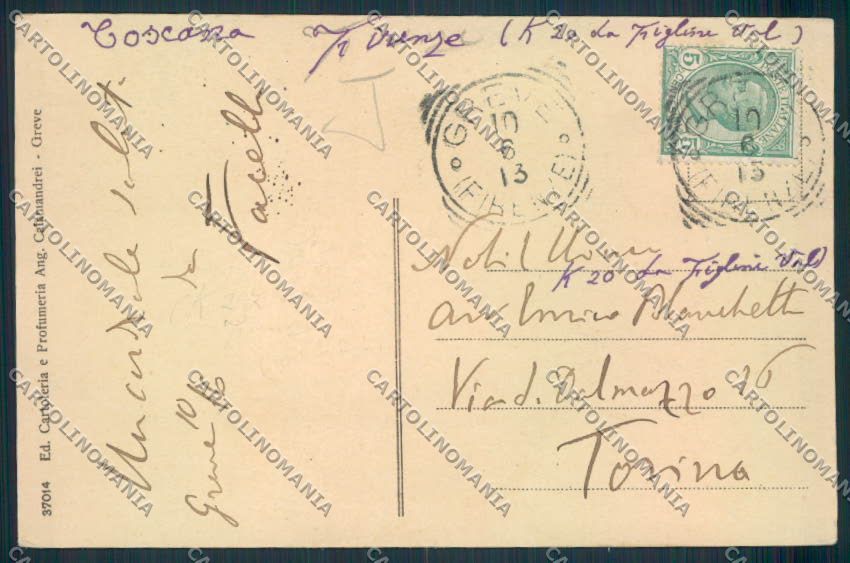 Toscana Firenze (K 20 La Figline Val)
37014 Ed. Cartoleria e Profumeria Ang. Calamandrei - Greve
Un cordiale saluto
da
Greve 10/6
GREVE
10
6
13
(FIRENZE)
5
GREVE
10
6
13
(FIRENZE)
Nobil Uomo
K 20 La Figline Val)
Enrico Bianchetti
Via d. Dalmazzo 16
Torino
CARTOLINOMANIA